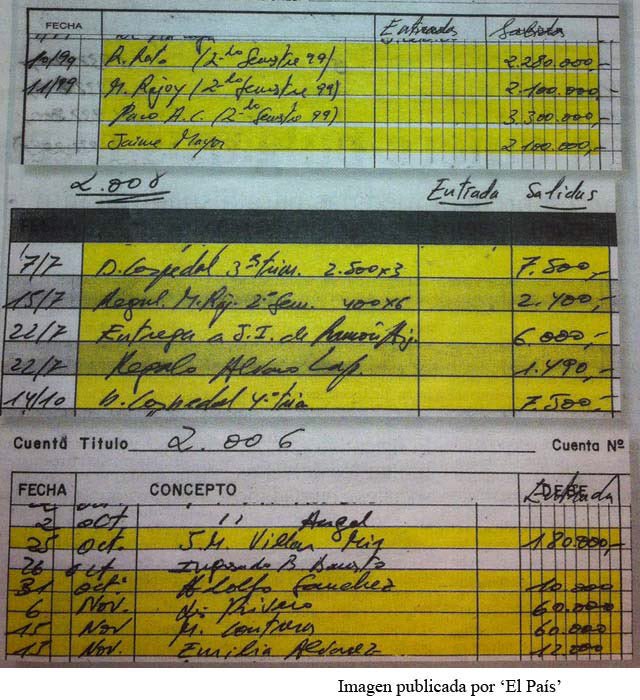 FECHA Entradas Salidas
10/99 R. Rato (2º Semestre 99) 2.280.000,-
11/99 M. Rajoy (2º Semestre 99) 2.100.000,-
Paco A.C. (2º Semestre 99) 3.300.000,-
Jaime Mayor 2.100.000,-
2.008 Entrada Salidas
7/7 D. Cospedal 3º trim. 2.500x3 7.500,-
15/7 Regul. M. Raj. 2º Sem. 400x6 2.400,-
22/7 Entrega a J.I. de 6.000,-
22/7 Regalo Alvaro Lap. 1.490,-
14/10 D. Cospedal 4º trim 7.500,-
Cuenta Titulo 2.006 Cuenta Nº
FECHA CONCEPTO DEBE Entrada
2 oct " Angel
25 oct. J.M. Villar Mir 180.000,-
26 oct Ingresado B.
31 oct. Adolfo Sanchez 10.000
6 Nov. 60.000
15 Nov M. Contreras 60.000
15 Nov. Emilio Alvarez 12.000
Imagen publicada por ‘El País’